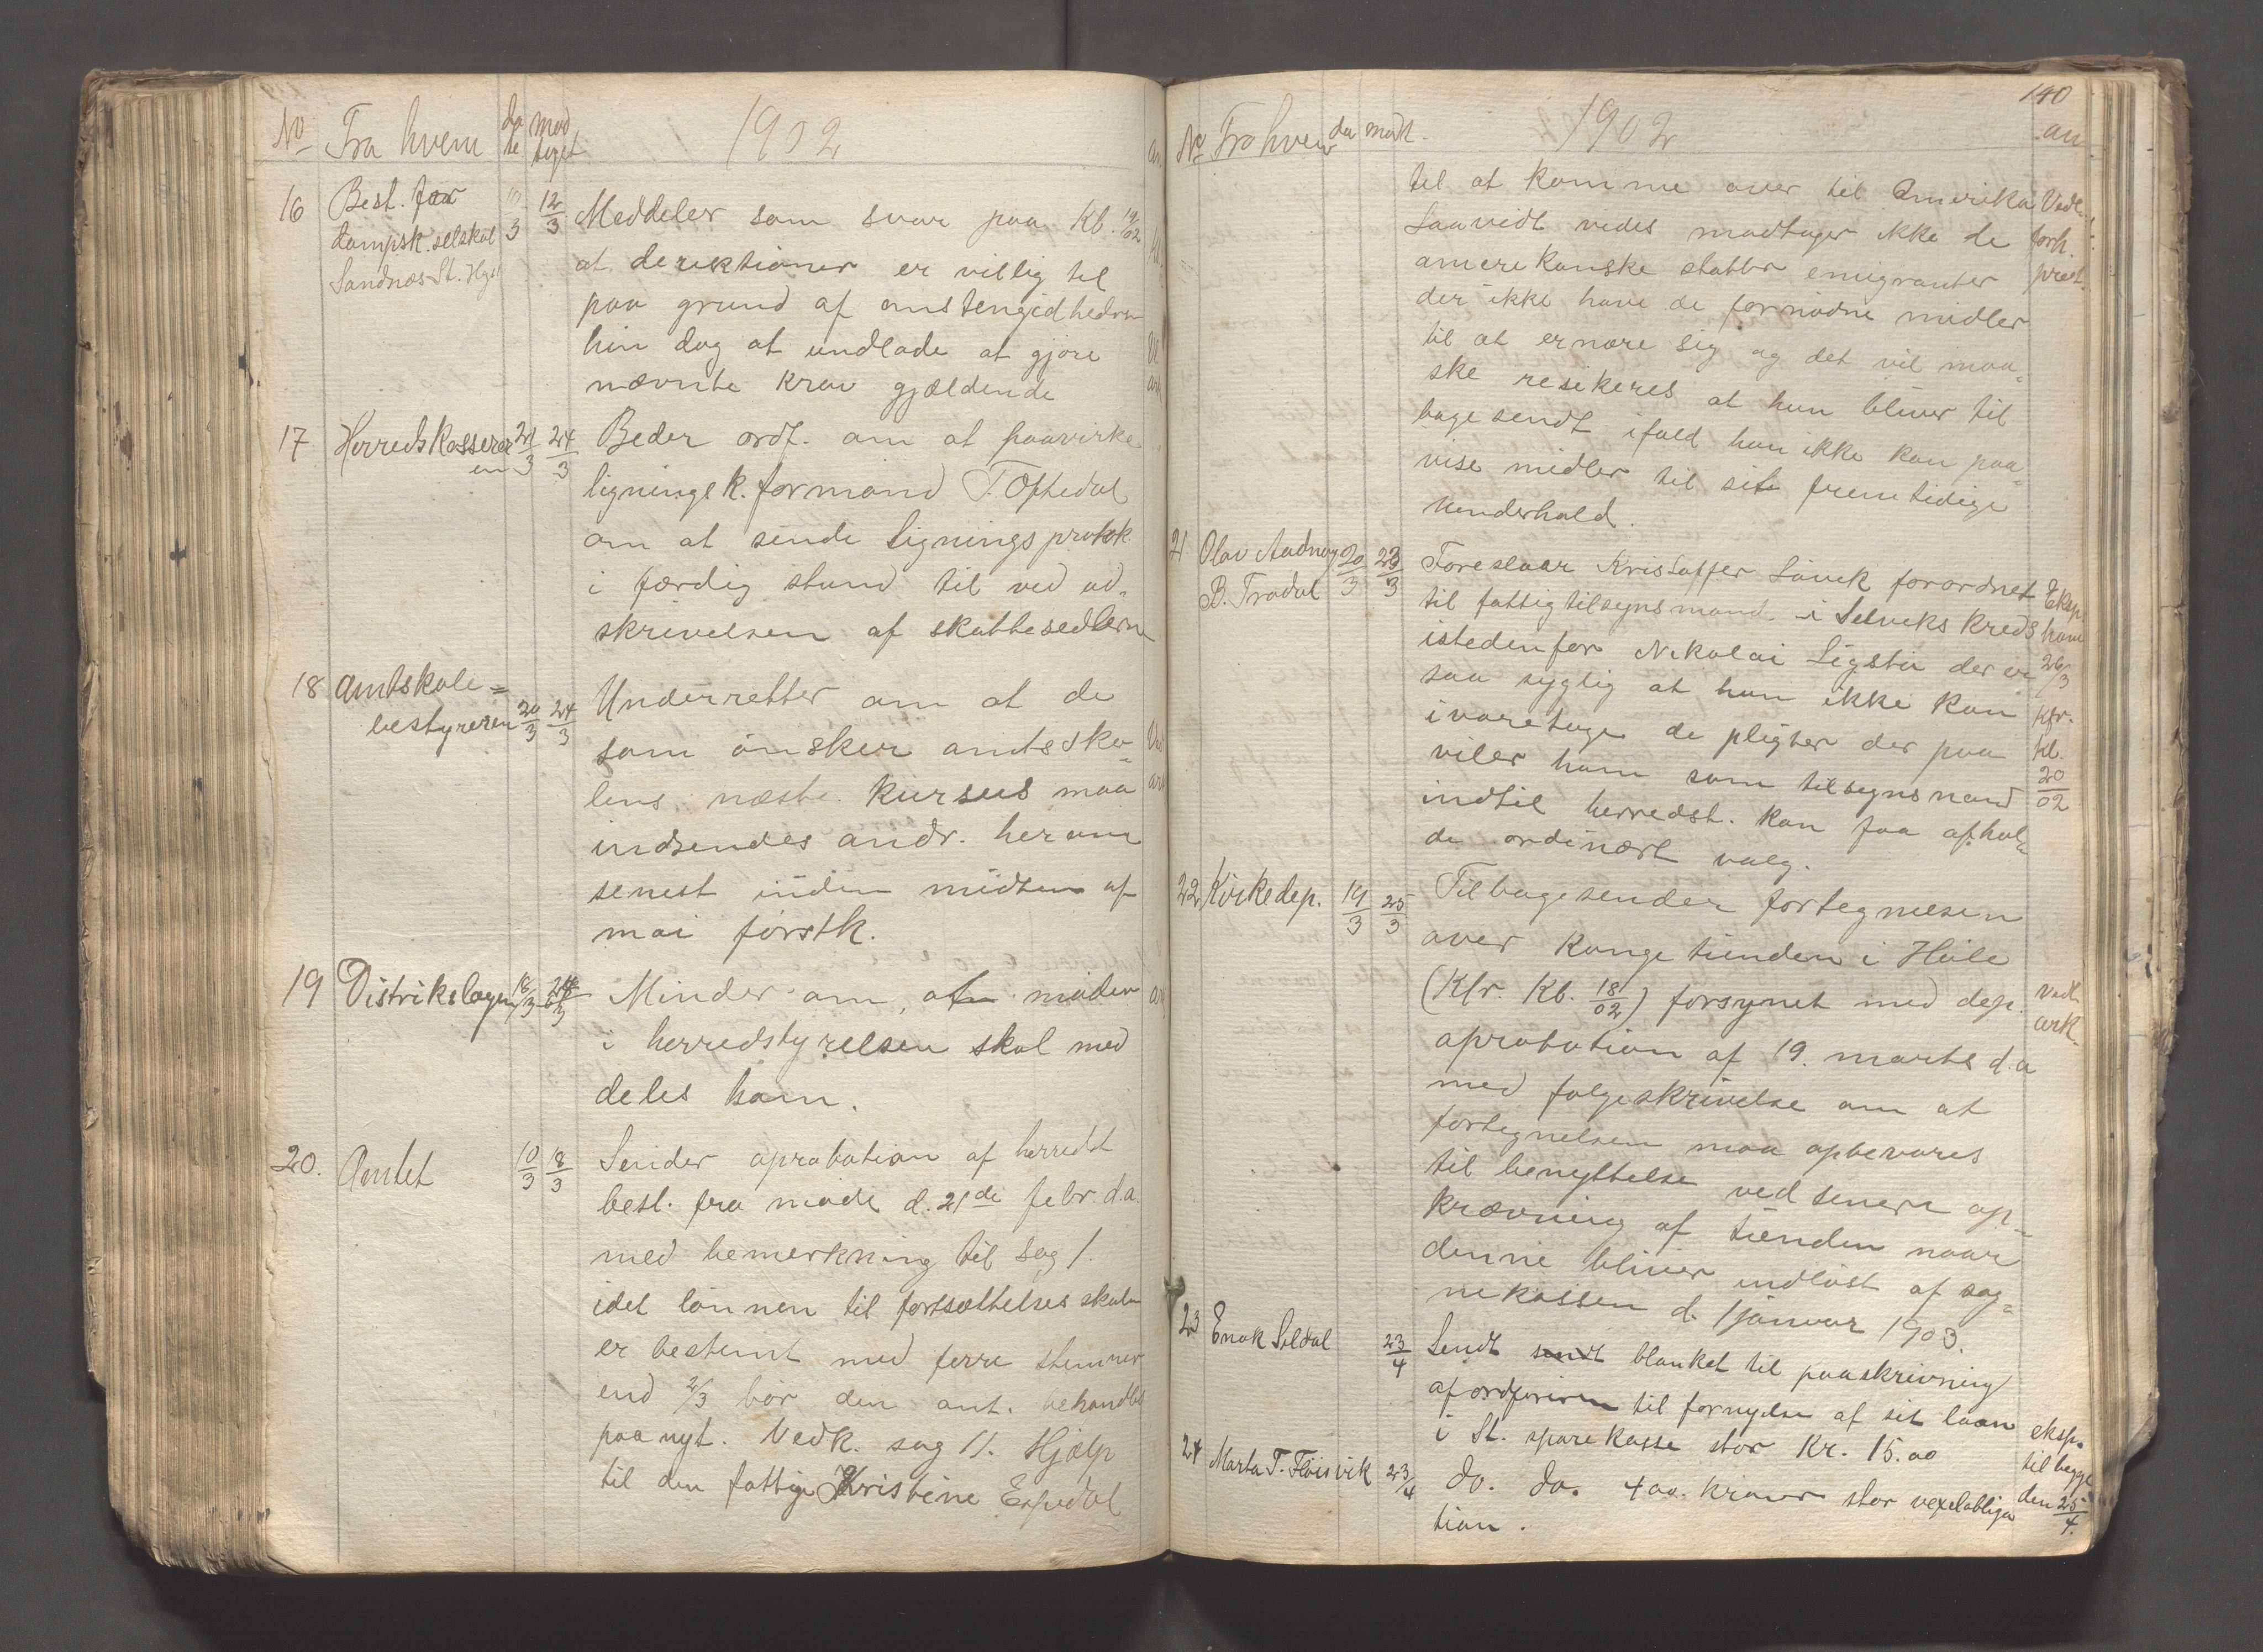 No Fra hvem da te mod taget 1902
16 Best. for 12/3 Meddeler som svar paa Kb. 19/02
dampsk. selskab
Sandnæs-St. Hgs
at derektionen er villig til
paa grund af omstengidhedern
hin dag at undlade at gjøre
nævnte krav gjældende
17 Herredskasserer 21/3 24/3 Beder ordf. om at paavirke
en
ligningsk. formand T. Oftedal
om at sende ligningsprotok
i færdig stand til ved ud-
skrivelsen af skattesedlerne
18 Amtskole= Underretter om at de
bestyreren 20/3 24/3
som ønsker amtssko-
lens næste kursus maa
indsendes andr. herom
senest inden midten af
mai førstk.
19 Distrikslægen 18/3 24/3 Minder om at møder
i herredstyrelsen skal med
deles ham.
20. Amtet 10/3 18/3 Sender aprobation af herredst
besl. fra møde d. 21de febr. d.a.
med bemerkning til sag 1.
idet lønnen til fortsættelses skolen
er bestemt med ferre stemmer
end 2/3 bør den ant. behandles
paa nyt. Vedk. sag 11. Hjælp
til den fattige Kristine Espedal
140
No Fra hvem da modt. 1902 an.
til at komme over til Amerika Vedl.
Saavidt vides modtager ikke de forh.
amerekanske stater emigranter prot.
der ikke have de fornødne midler
til at ernære sig og det vil maa-
ske resikeres at hun bliver til
bage sendt ifald hun ikke kan paa-
vise midler til sit fremtidige
underhold.
21 Olav Aadnøy 20/3 23/3 Foreslaar Kristoffer Løvik forordnet Eksp.
B. Tradal til fattigtilsynsmand i Selviks kreds ham
istedenfor Nikolai Ligstu der er 26/3
saa syglig at han ikke kan Kfr.
ivaretage de pligter der paa Kb.
viler ham som tilsynsmand 20/02
indtil herredst. kan faa afhol-
de ordinært valg.
22 Kirkedep. 19/3 25/3 Tilbagesender fortegnelsen
over kongetienden i Høle
(Kfr. Kb. 18/02) forsynet med dep. vedl.
aprobation af 19. marts d.a ark.
med følgeskrivelse om at
fortegnelsen maa opbevares
til benyttelse ved senere op-
krævning af tienden naar
denne bliver indløst af sog=
nekassen d. 1 januar 1903.
23 Enok Seldal 23/4 Sendt sendt blanket til paaskrivning
af ordføreren til fornyelse af sit laan eksp.
i St. sparekasse stor Kr. 15.00 til begge
24 Marta T. Fløisvik 23/4 do. do. 400. kroner stor vexelobliga den 25/4.
tion.